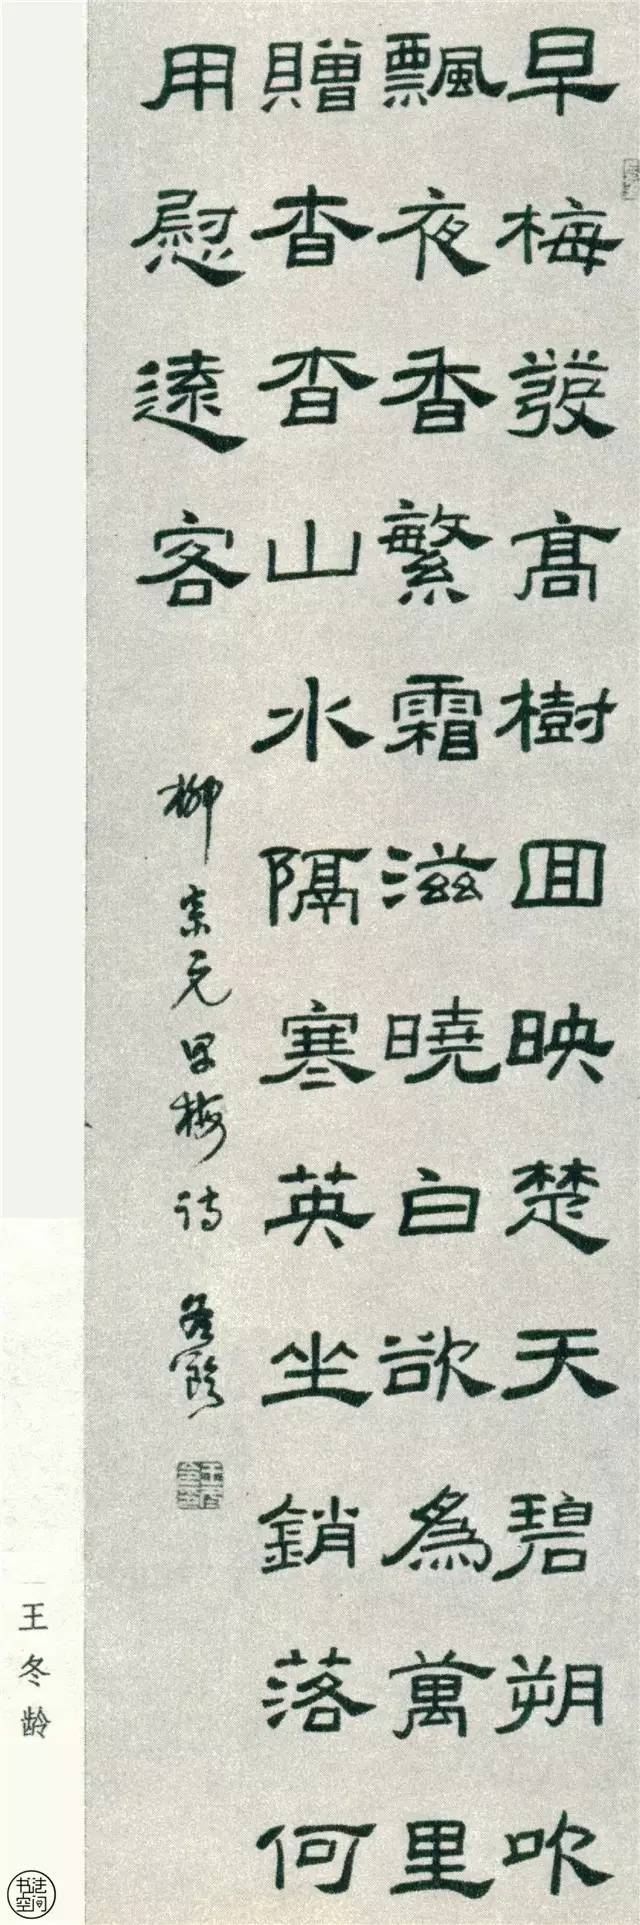 早梅發高樹迥映楚天碧朔吹
飄夜香繁霜滋曉白欲為萬里
贈杳杳山水隔寒英坐銷落何
用慰遠客
柳宗元早梅诗 冬龄
王冬龄
书法空间